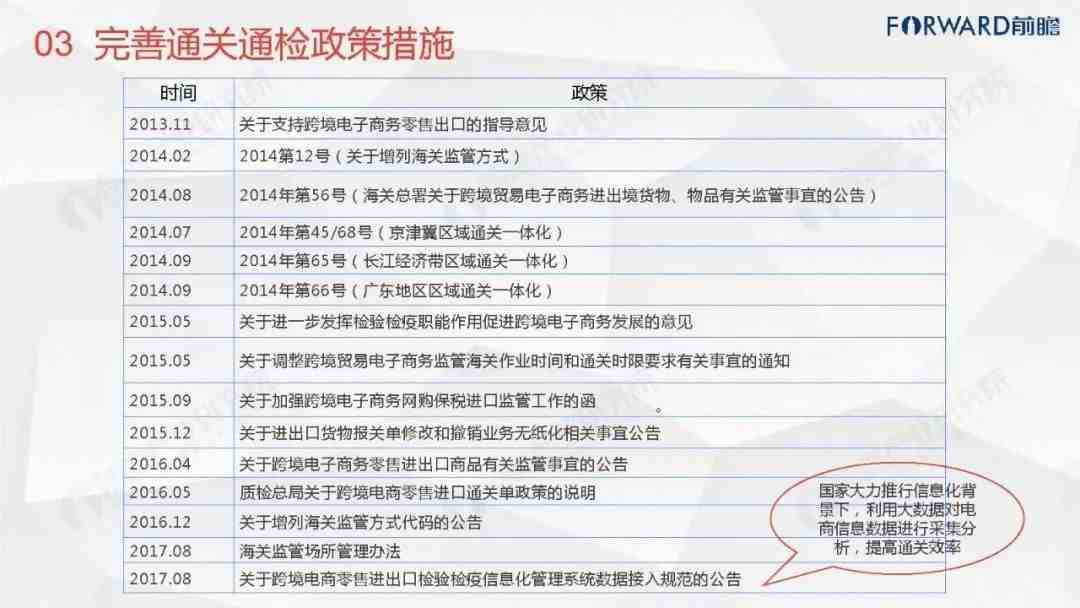 03 完善通关通检政策措施
FORWARD前瞻
时间 政策
2013.11 关于支持跨境电子商务零售出口的指导意见
2014.02 2014第12号（关于增列海关监管方式）
2014.08 2014年第56号（海关总署关于跨境贸易电子商务进出境货物、物品有关监管事宜的公告）
2014.07 2014年第45/68号（京津翼区域通关一体化）
2014.09 2014年第65号（长江经济带区域通关一体化）
2014.09 2014年第66号（广东地区区域通关一体化）
2015.05 关于进一步发挥检验检疫职能作用促进跨境电子商务发展的意见
2015.05 关于调整跨境贸易电子商务监管海关作业时间和通关时限要求有关事宜的通知
2015.09 关于加强跨境电子商务网购保税进口监管工作的函 。
2015.12 关于进出口货物报关单修改和撤销业务无纸化相关事宜公告
2016.04 关于跨境电子商务零售进出口商品有关监管事宜的公告
2016.05 质检总局关于跨境电商零售进口通关单政策的说明
2016.12 关于增列海关监管方式代码的公告
2017.08 海关监管场所管理办法
2017.08 关于跨境电商零售进出口检验检疫信息化管理系统数据接入规范的公告
国家大力推行信息化背
景下，利用大数据对电
商信息数据进行采集分
析，提高通关效率